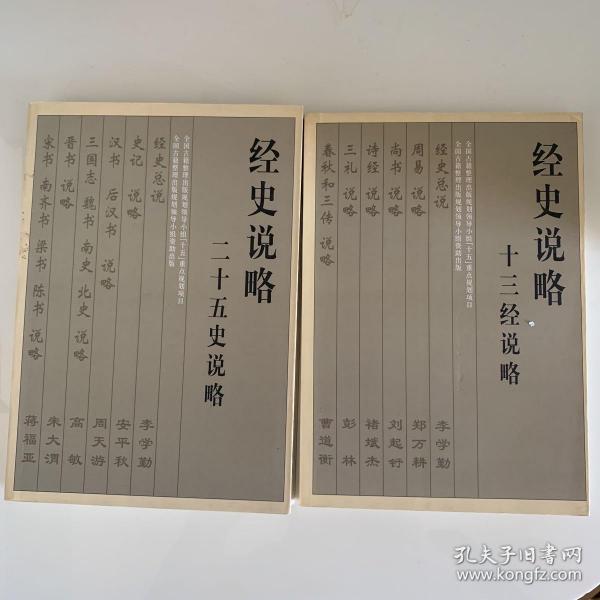 经史说略
二十五史说略
全国古籍整理出版规划领导小组「十五」重点规划项目
全国古籍整理出版规划领导小组资助出版
经史总说 李学勤
史记 说略 安平秋
汉书 后汉书 说略 周天游
三国志 魏书 南史 北史 说略 高敏
晋书 说略 朱大渭
宋书 南齐书 梁书 陈书 说略 蒋福亚
经史说略
十三经说略
全国古籍整理出版规划领导小组「十五」重点规划项目
全国古籍整理出版规划领导小组资助出版
经史总说 李学勤
周易 说略 郑万耕
尚书 说略 刘起釪
诗经 说略 褚斌杰
三礼 说略 彭林
春秋和三传 说略 曹道衡
孔夫子旧书网
www.kongfz.com